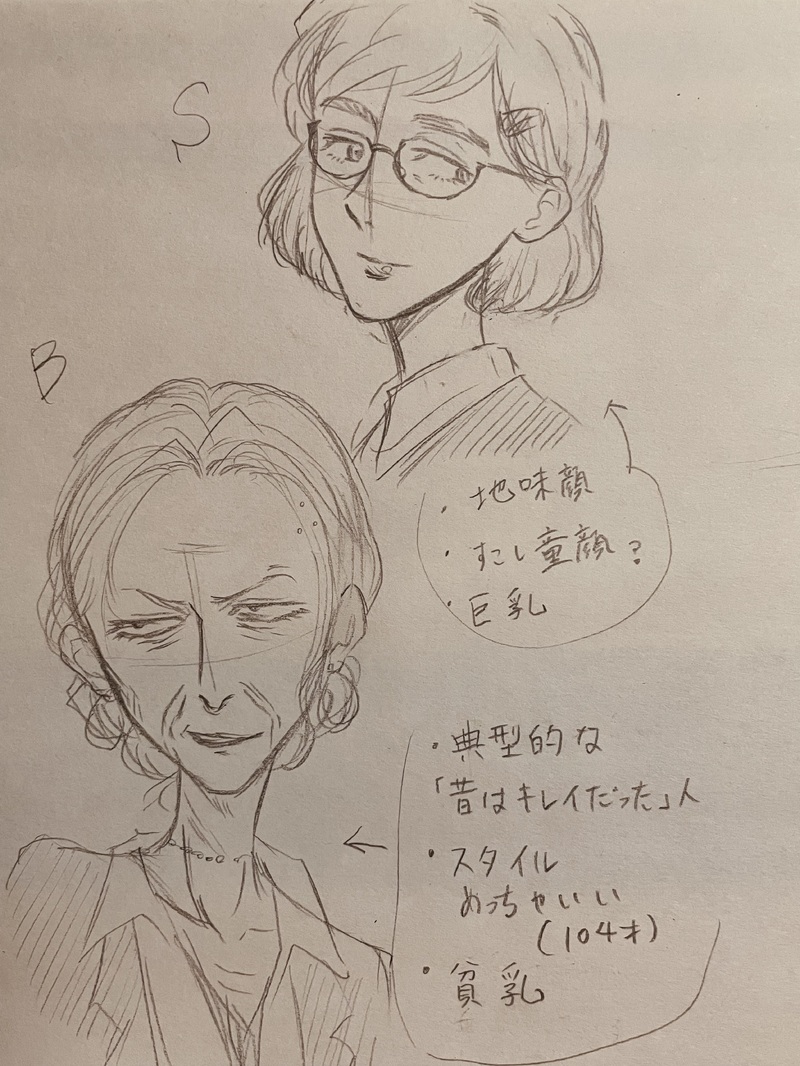 S
・地味顔
・すこし童顔?
・巨乳
B
・典型的な
「昔はキレイだった」人
・スタイル
めっちゃいい
(104才)
・貧乳